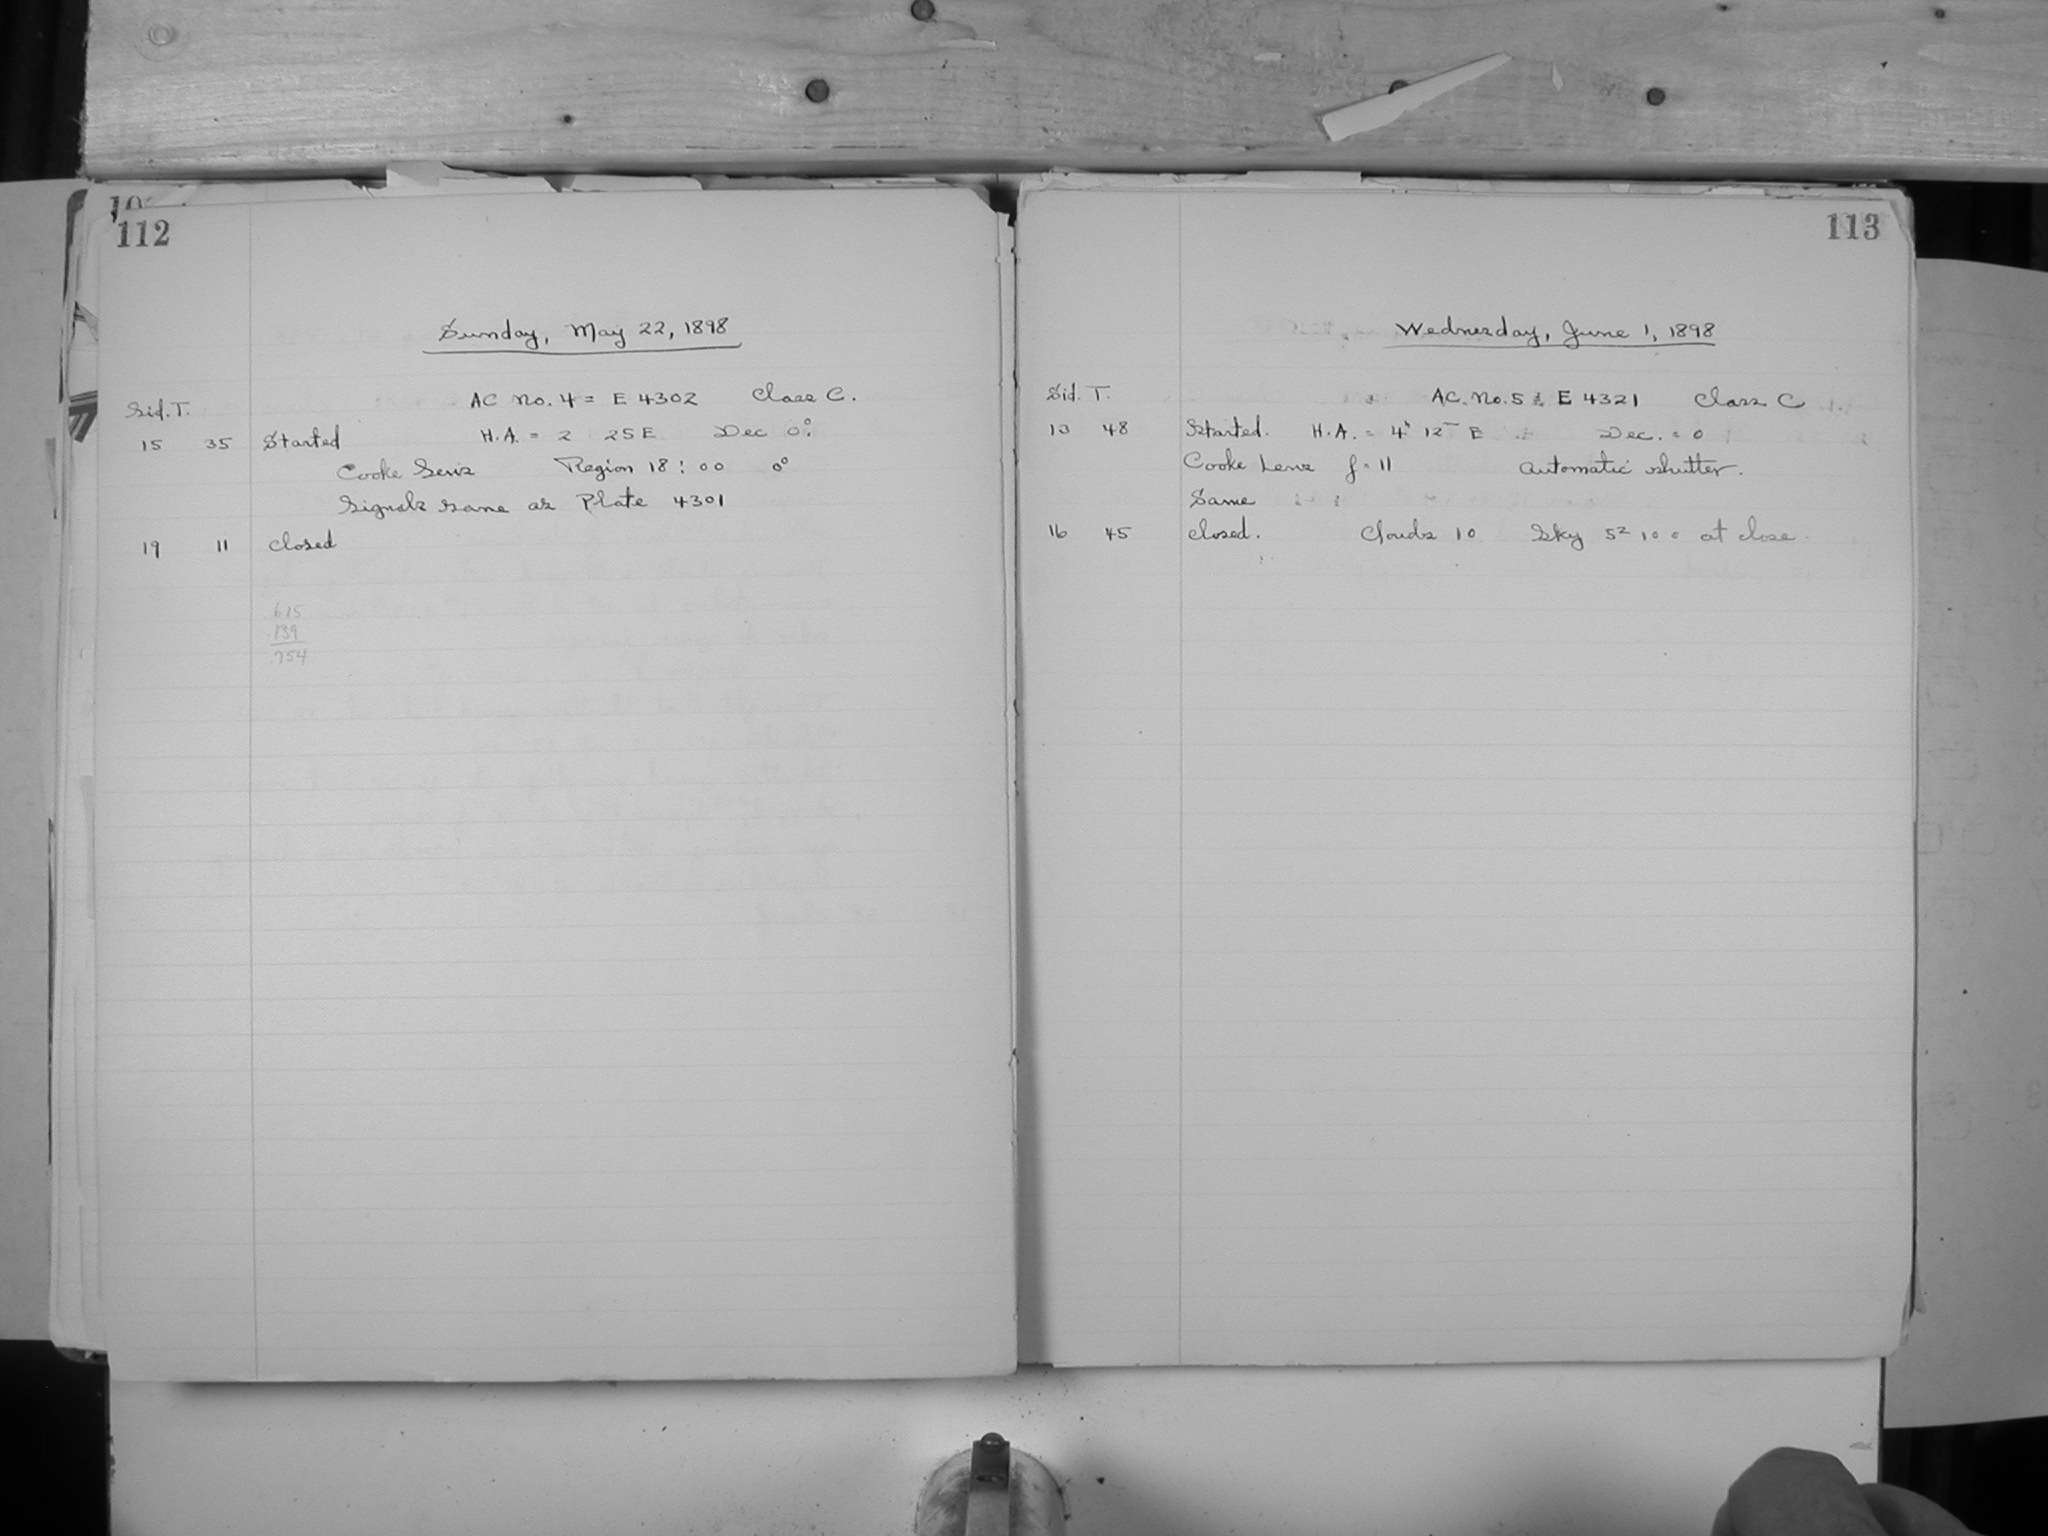 112
Sunday, May 22, 1898
Sid. T.
AC No. 4 = E 4302 Class C.
15 35 Started H.A. = 2 25 E Dec 0°.
Cooke Lens Region 18 : 00 0°
Signals same as Plate 4301
19 11 closed
.615
.139
.754
113
Wednesday, June 1, 1898
Sid. T.
AC. No. 5 = E 4321 Class C
13 48 Started. H.A. = 4h 12m E Dec. = 0
Cooke Lens f = 11 Automatic shutter.
Same
16 45 closed. Clouds 10 Sky 5 2 10 0 at close.